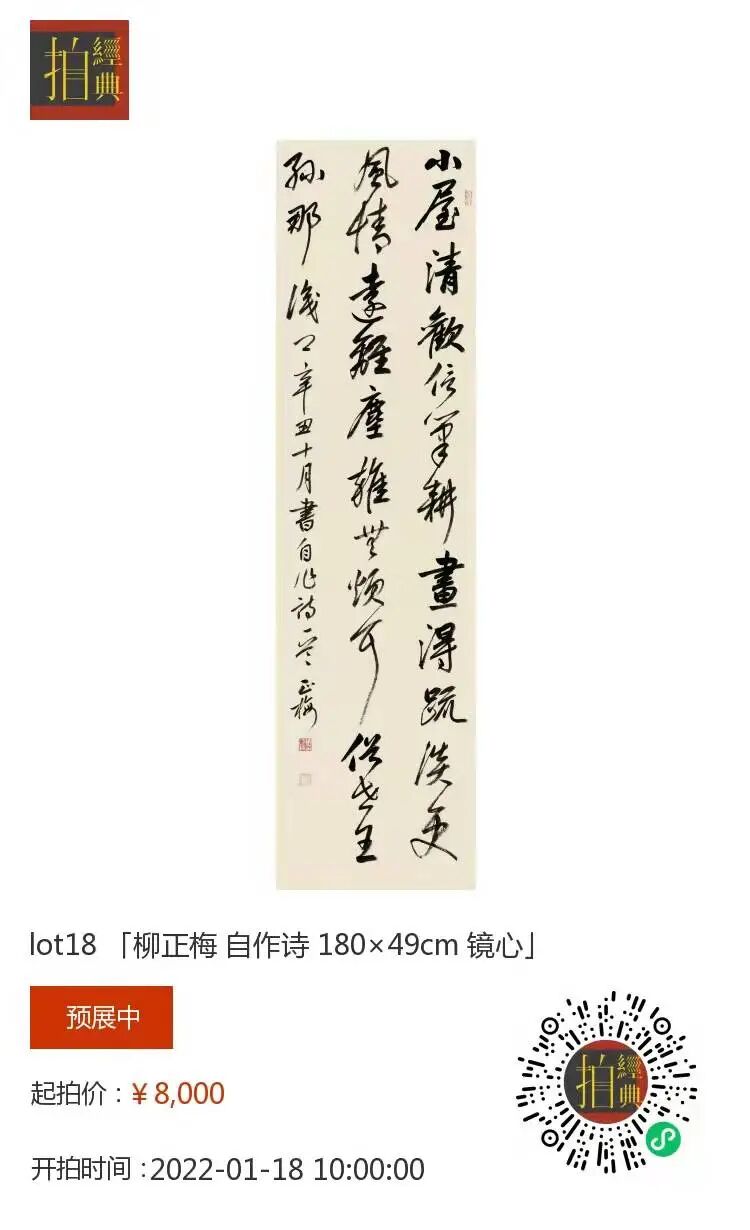 經典
拍
小屋清歡信筆耕畫得疏淡更
風情遠離塵雜無煩 俗世王
孫那 辛丑十月書自作詩一首 正梅
lot18 「柳正梅 自作诗 180×49cm 镜心」
预展中
起拍价：¥8,000
开拍时间：2022-01-18 10:00:00
經典
拍